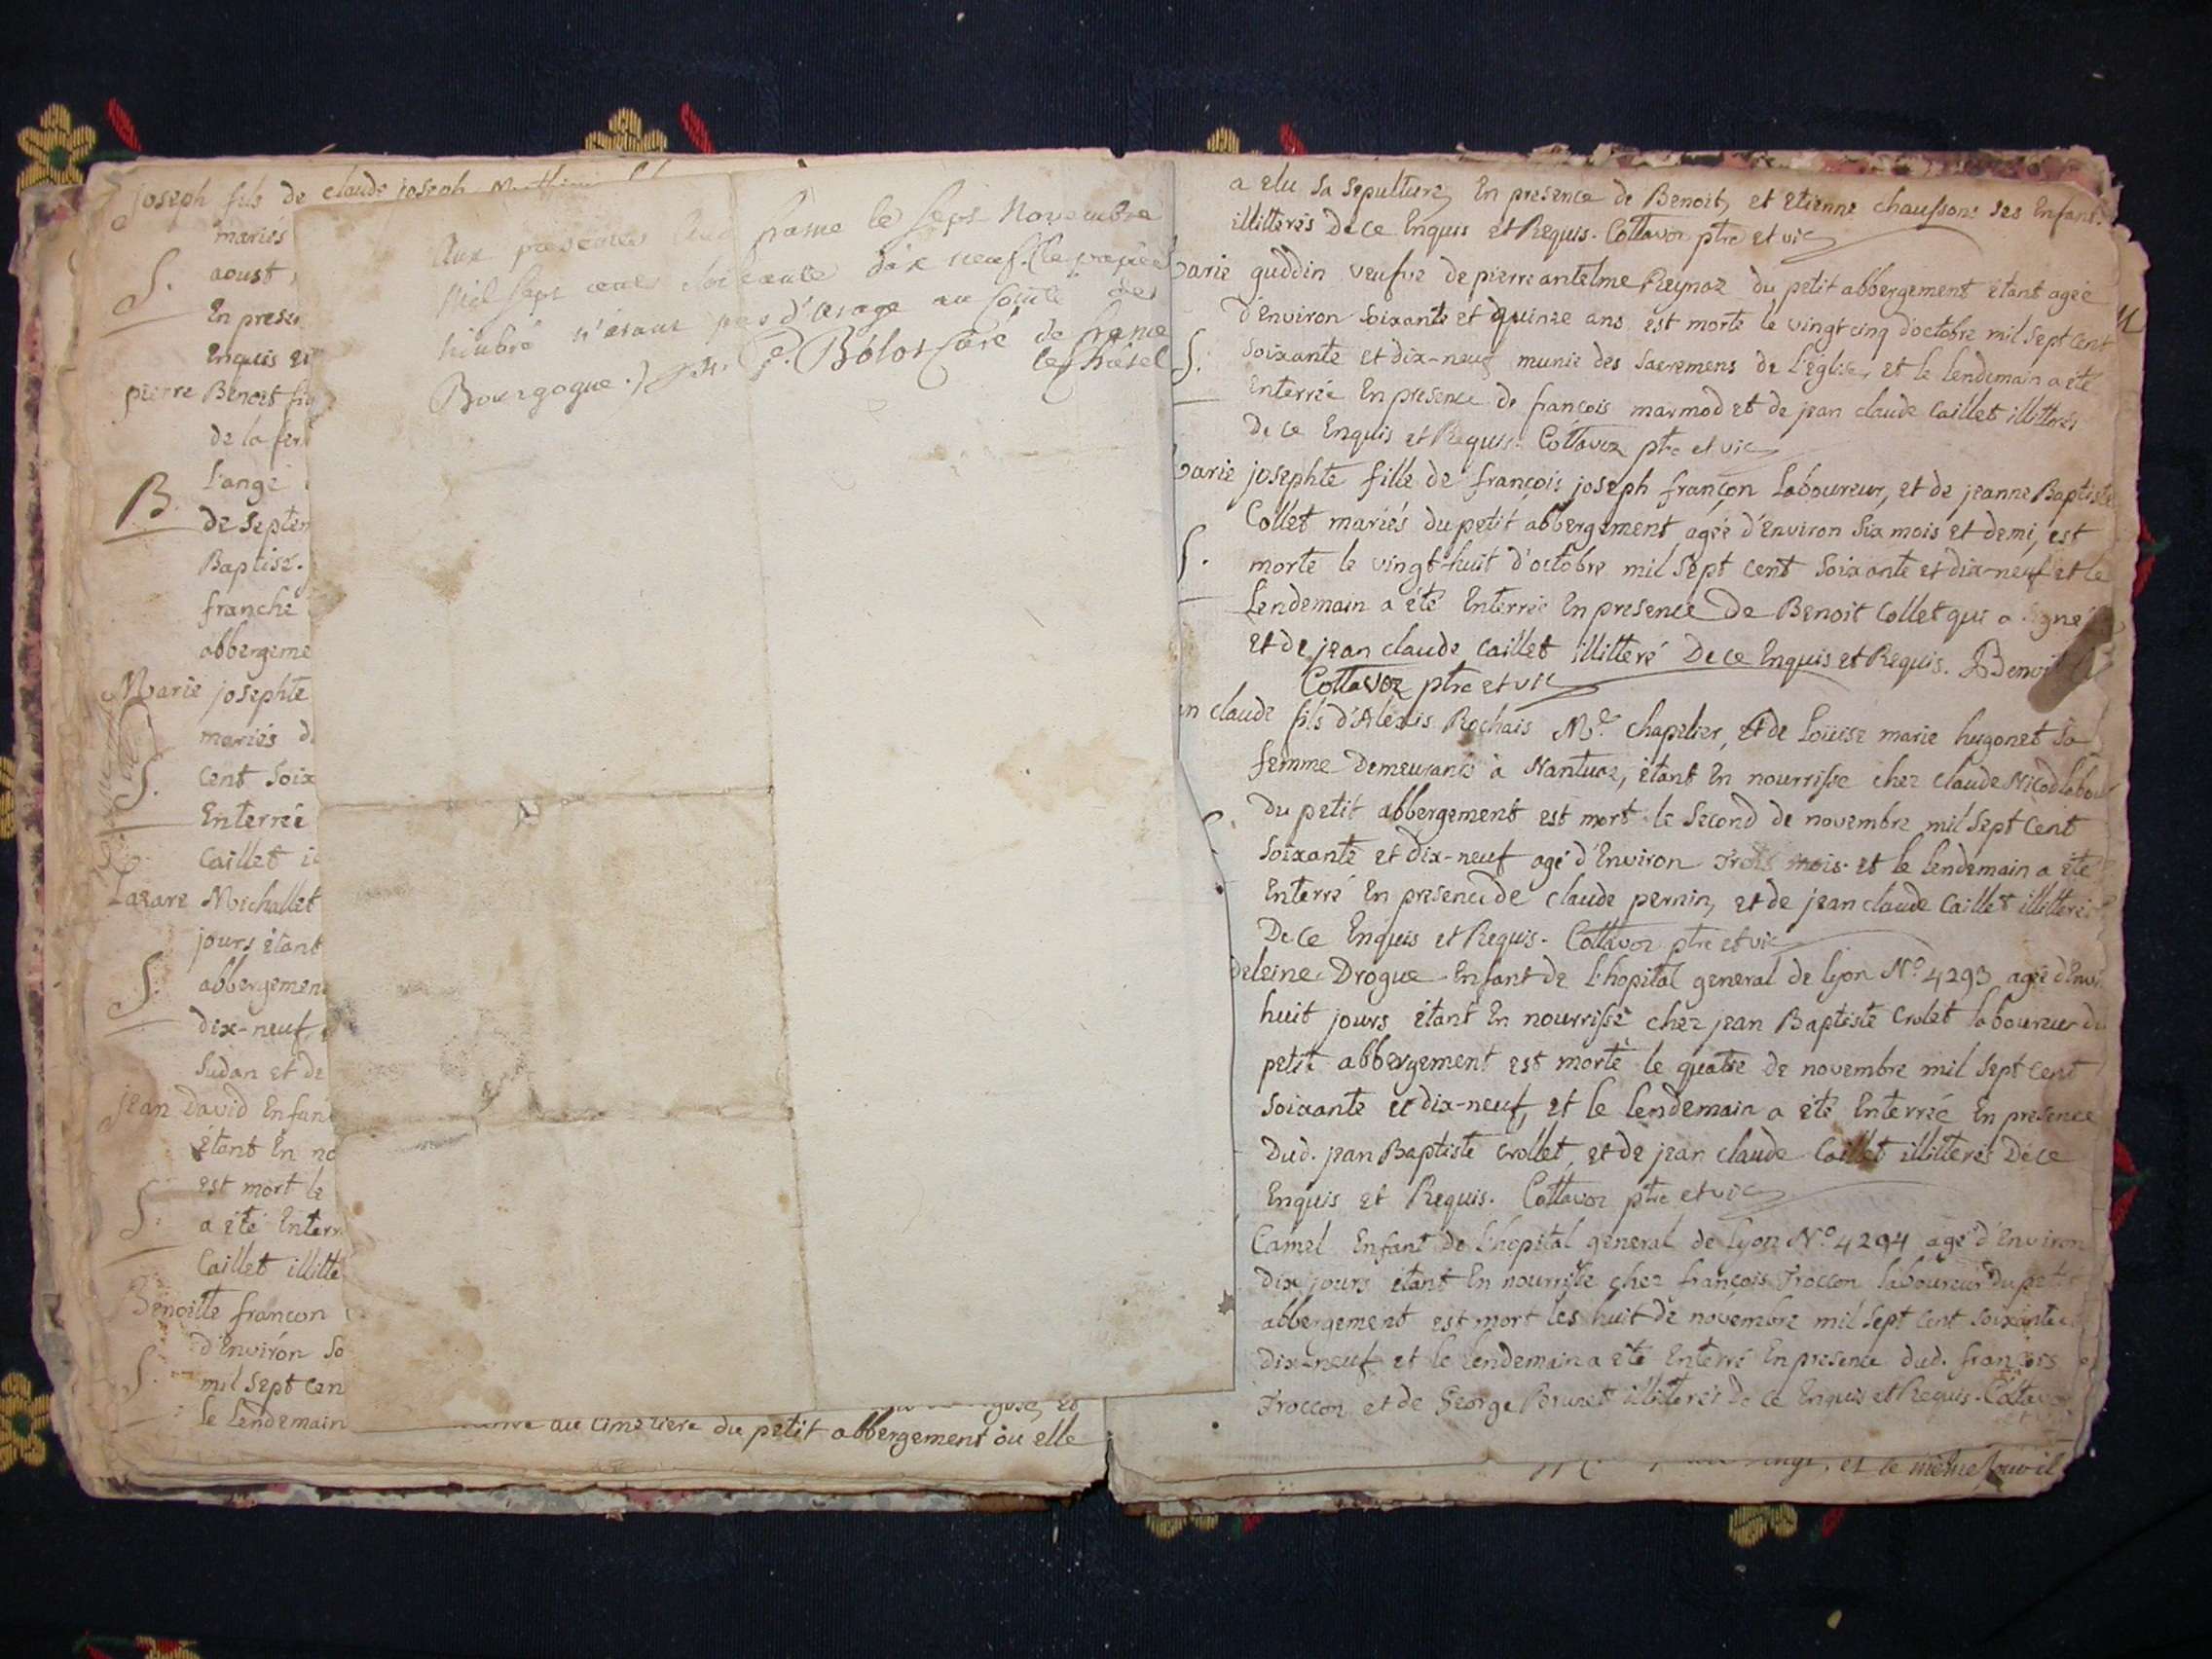 joseph fils de claude joseph
mariés
S. aoust
En presen
Enquis et
pierre Benoit
de la
l'ange
B de septem
Baptisé.
franche
abbergeme
Marie josephte
mariés d
S. cent soix
Enterrée
Caillet
Lazare Michallet
jours étant
S. abbergement
dix-neuf
Sudan et de
jean David Enfan
étant En no
est mort le
S. a été Enterr
Caillet illitté
Benoitte françon
d'Environ so
S. mil sept cen
le lendemain
au cimetiere du petit abbergement où elle
Aux presentes frasne le sept Novembre
Mil sept cents soixante dix neuf. (le papier
timbré n'étant pas d'usage au Comté de
Bourgogne.) Bolos Curé de frasne
le chatel
a elu sa sepulture, En presence de Benoit, et Etienne chaussons ses Enfants
illitterés de ce Enquis et Requis. Cottavoz ptre et vic
arie guddin veufve de pierre antelme Reynoz du petit abbergement étant agée
d'Environ soixante et quinze ans est morte le vingt cinq d'octobre mil sept cent
S. soixante et dix-neuf munie des sacremens de l'église, et le lendemain a été
Enterrée En presence de françois marmod et de jean claude Caillet illitterés
de ce Enquis et Requis. Cottavoz ptre et vic
arie josephte fille de françois joseph françon Laboureur, et de jeanne Baptiste
Collet mariés du petit abbergement agée d'Environ six mois et demi, est
S. morte le vingt-huit d'octobre mil sept cent soixante et dix-neuf et le
Lendemain a été Enterrée En presence de Benoit Collet qui a signé
et de jean claude caillet illitteré De ce Enquis et Requis. Benoit
Cottavoz ptre et vic
n claude fils d'Alexis Rochais Me. chapelier, et de Loüise marie hugonet sa
femme demeurants à Nantuaz, étant En nourrisse chez claude Nicod labou
du petit abbergement est mort le second de novembre mil sept cent
S. soixante et dix-neuf agé d'Environ trois mois et le lendemain a été
Enterré En presence de claude pernin, et de jean claude Caillet illitterés
De ce Enquis et Requis. Cottavoz ptre et vic
deleine Drogue Enfant de l'hopital general de lyon No. 4293 agée d'Envi
huit jours étant En nourrisse chez jean Baptiste Crolet laboureur du
petit abbergement est morte le quatre de novembre mil sept cent
soixante et dix-neuf, et le lendemain a été Enterrée En presence
Dud. jean Baptiste Crollet, et de jean claude Caillet illitterés De ce
Enquis et Requis. Cottavoz ptre et vic
Camel Enfant de l'hopital general de lyon No. 4294 agé d'Environ
dix jours étant En nourrisse chez françois Troccon laboureur Du petit
abbergement est mort les huit de novembre mil sept cent soixante et
dix-neuf et le lendemain a été Enterré En presence dud. françois
Troccon et de George Perunet illitterés de ce Enquis et Requis. Cottavoz
et le même